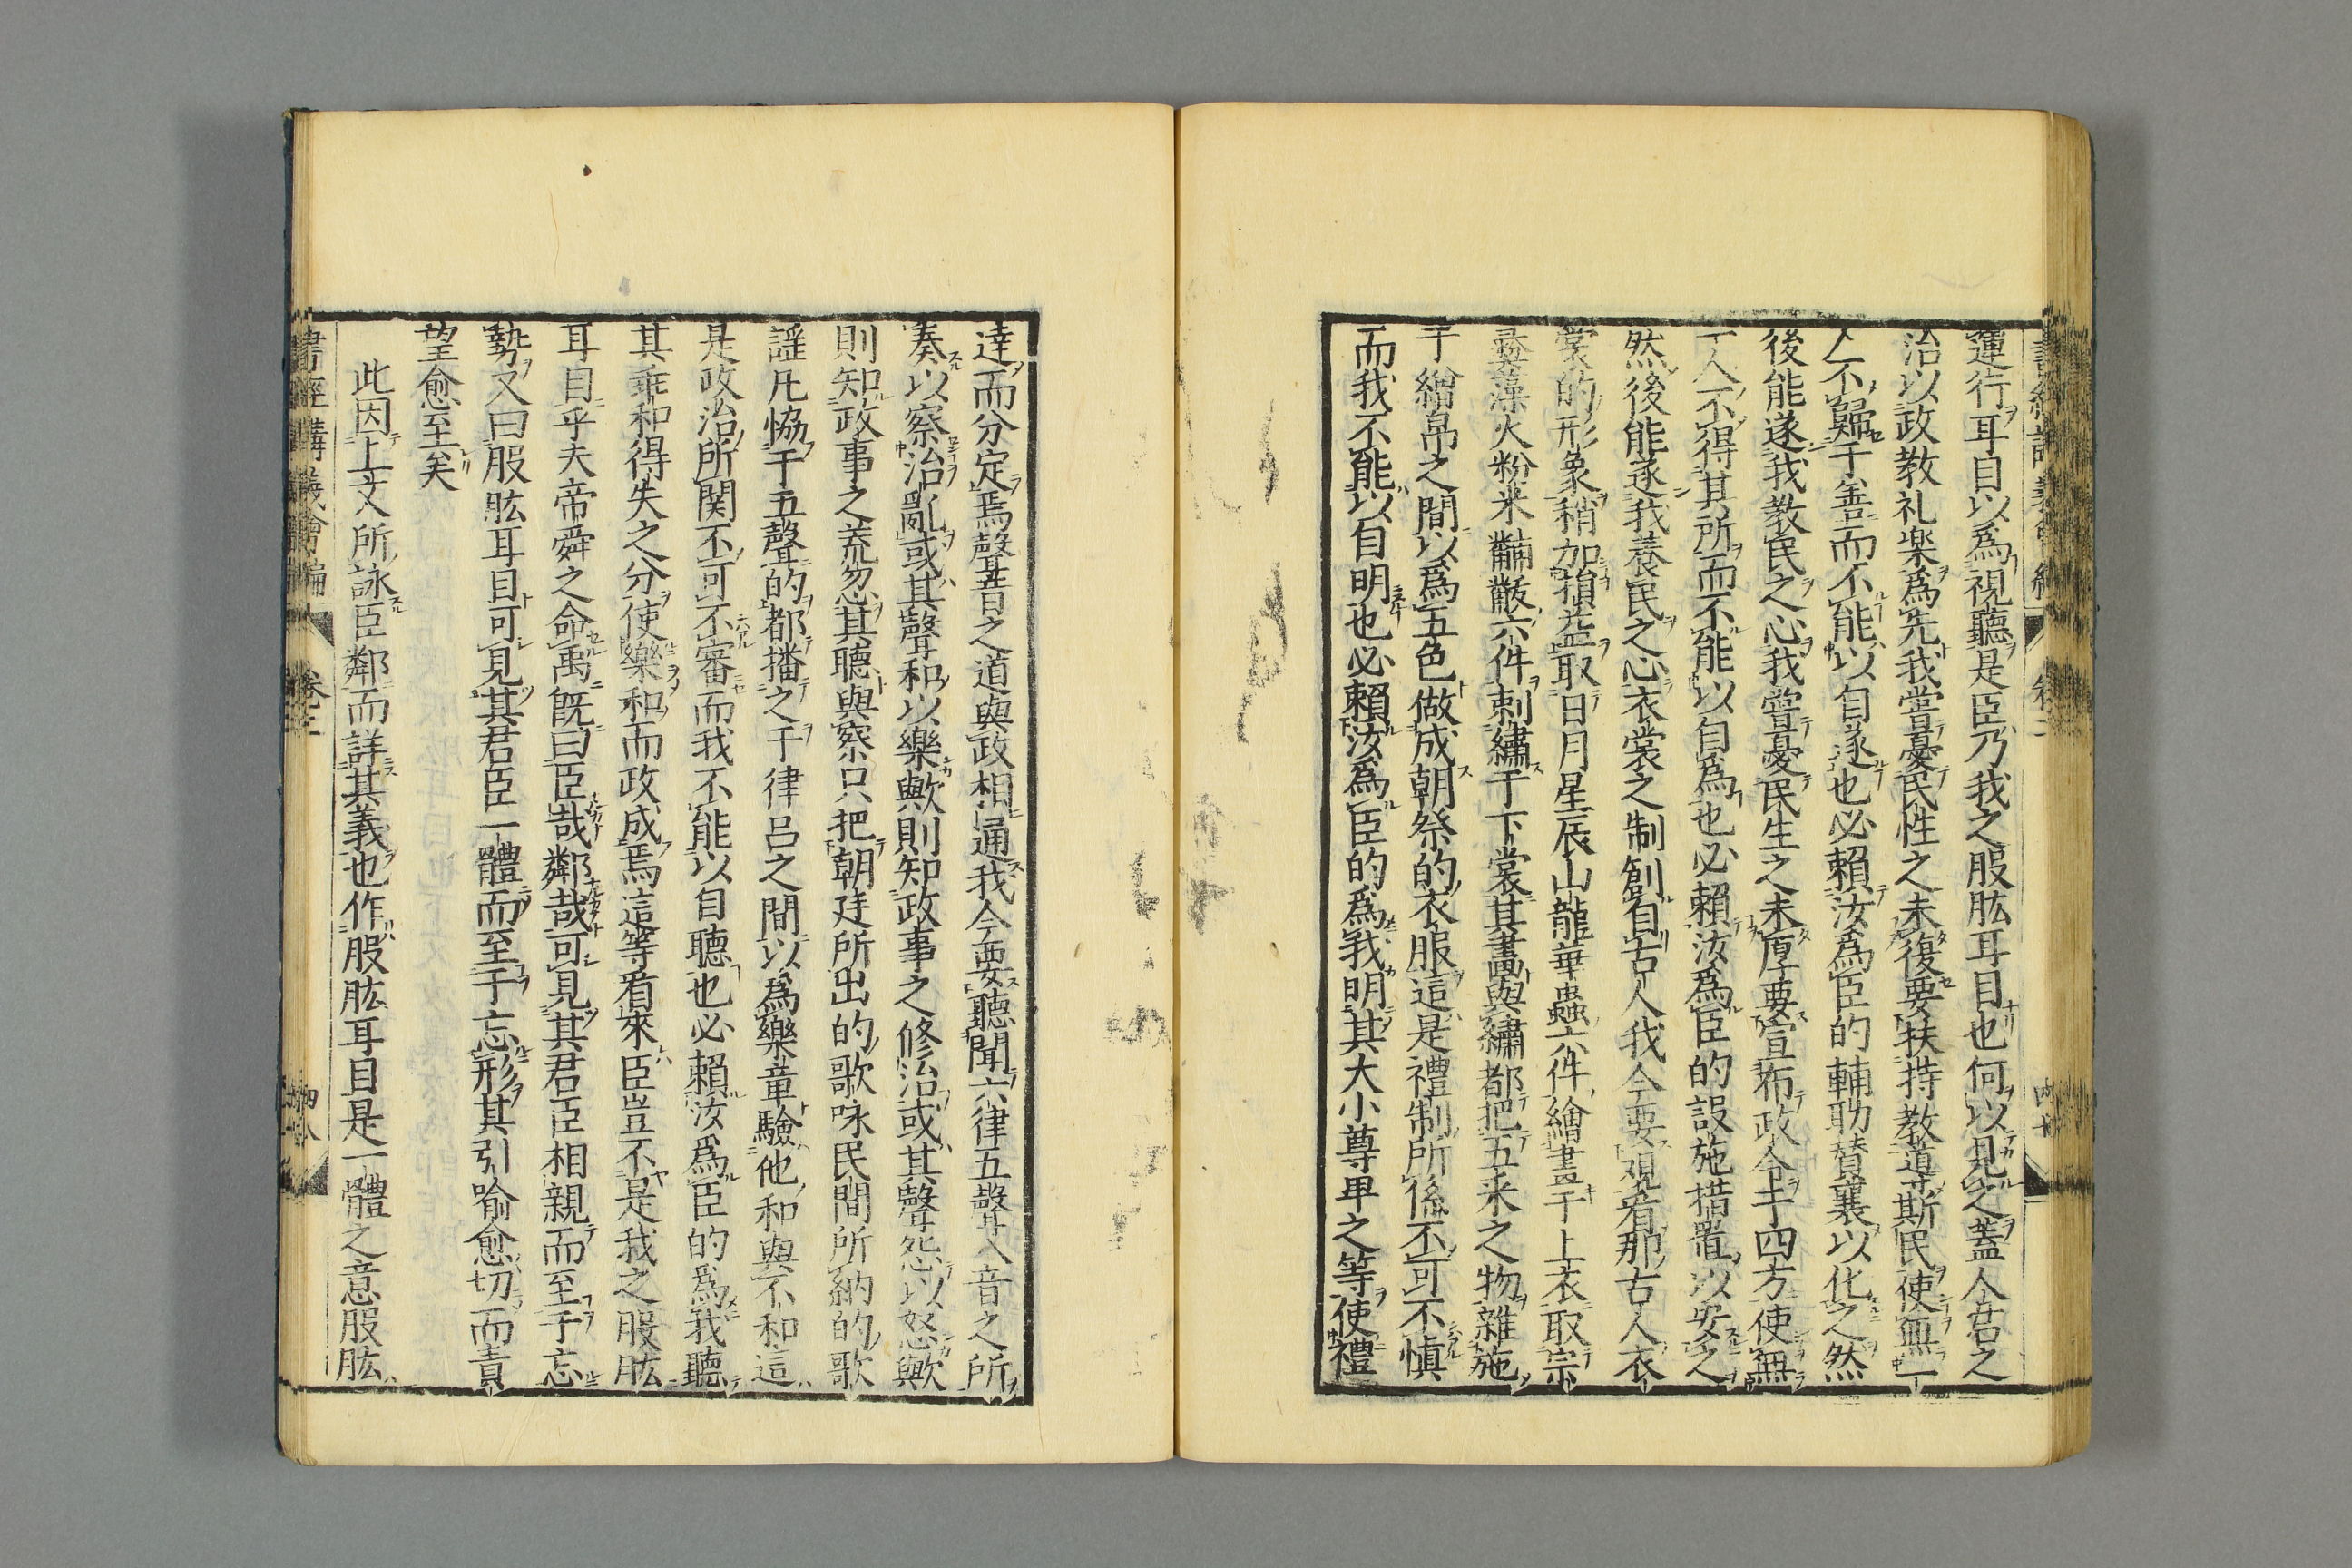 運行耳目以為視聽是臣乃我之股肱耳目也何以見之蓋人君之
治以政教礼楽為先我嘗憂民性之未復要扶持教道斯民使無一
人不歸于善而不能以自遂也必賴汝為臣的輔助贊襄以化之然
後能遂我教民之心我嘗憂民生之未厚要宣布政令于四方使無
一人不得其所而不能以自為也必賴汝為臣的設施措置以安之
然後能遂我養民之心衣裳之制創自古人我今要觀看那古人衣
裳的形象稍加損益取日月星辰山龍華蟲六件繪畫于上衣取宗
彝藻火粉米黼黻六件刺繡于下裳其畫與繡都把五采之物雜施
于繒帛之間以為五色做成朝祭的衣服這是禮制所係不可不慎
而我不能以自明也必賴汝為臣的為我明其大小尊卑之等使禮
達而分定焉聲音之道與政相通我今要聽聞六律五聲八音之所
奏以察治亂或其聲和以樂歟則知政事之修治或其聲怨以怒歟
則知政事之荒忽其聽與察只把朝廷所出的歌咏民間所納的歌
謡凡恊于五聲的都播之于律呂之間以為樂章驗他和與不和這
是政治所関不可不審而我不能以自聽也必賴汝為臣的為我聽
其乖和得失之分使樂和而政成焉這等看來臣豈不是我之股肱
耳目乎夫帝舜之命禹既曰臣哉鄰哉可見其君臣相親而至于忘
勢又曰股肱耳目可見其君臣一體而至于忘形其引喻愈切而責
望愈至矣
此因上文所詠臣鄰而詳其義也作股肱耳目是一體之意股肱
書經講義會編 卷二 四八